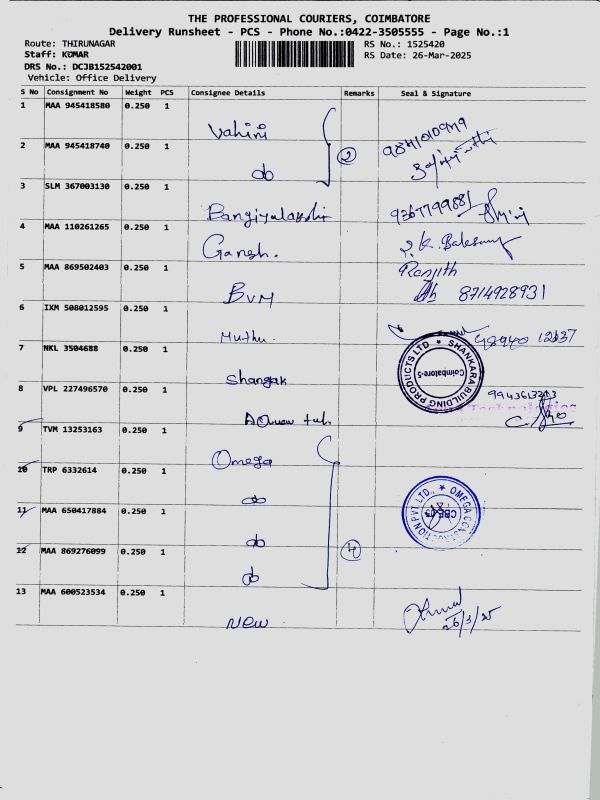 THE PROFESSIONAL COURIERS, COIMBATORE
Delivery Runsheet - PCS - Phone No.:0422-3505555 - Page No.:1
Route: THIRUNAGAR
RS No.: 1525420
Staff: KUMAR
RS Date: 26-Mar-2025
DRS No.: DCJB152542001
Vehicle: Office Delivery
S No Consignment No Weight PCS Consignee Details Remarks Seal & Signature
1 MAA 945418580 0.250 1
Vahini
2 MAA 945418740 0.250 1
2
do
3 SLM 367003130 0.250 1
9367799881
4 MAA 110261265 0.250 1
Ganesh.
5 MAA 869502403 0.250 1
Renjith
BVM
8714928931
6 IXM 508012595 0.250 1
Muthu
7 NKL 3504688 0.250 1
SHANKARA BUILDING PRODUCTS LTD
Coimbatore-5
8 VPL 227496570 0.250 1
9 TVM 13253163 0.250 1
Omega
10 TRP 6332614 0.250 1
do
OMEGA CONSTRUCTION PVT LTD.,
11 MAA 650417884 0.250 1
do
12 MAA 869276099 0.250 1
4
do
13 MAA 600523534 0.250 1
New
26/3/25